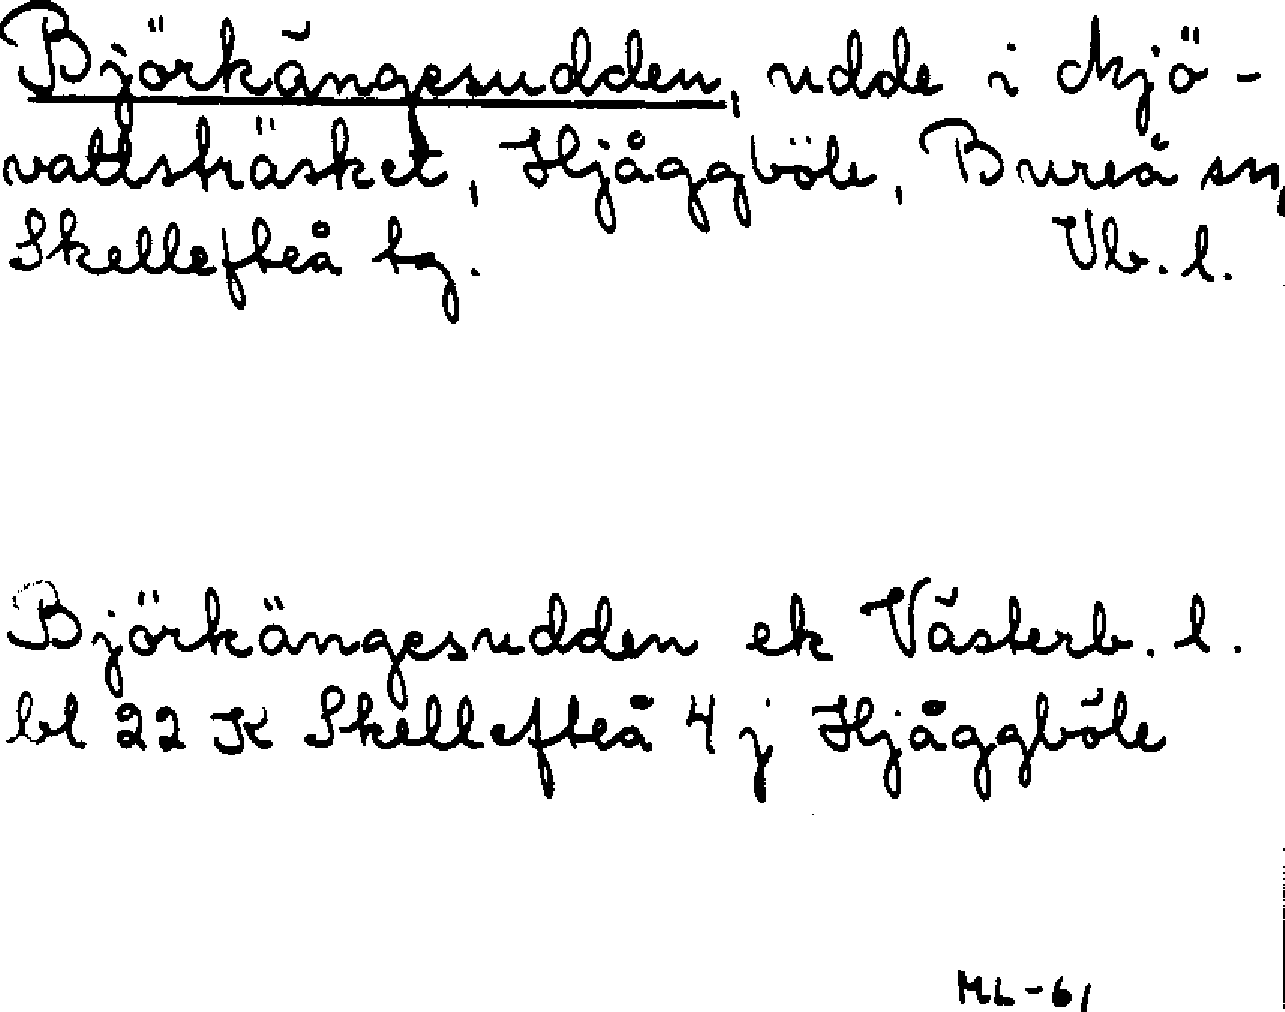 Björkängesudden, udde i Mjö-
vattsträsket, Hjåggböle, Bureå sn,
Skellefteå tg. Vb. l.
Björkängesudden ek Västerb. l.
bl 22 K Skellefteå 4 j Hjåggböle
ML-61